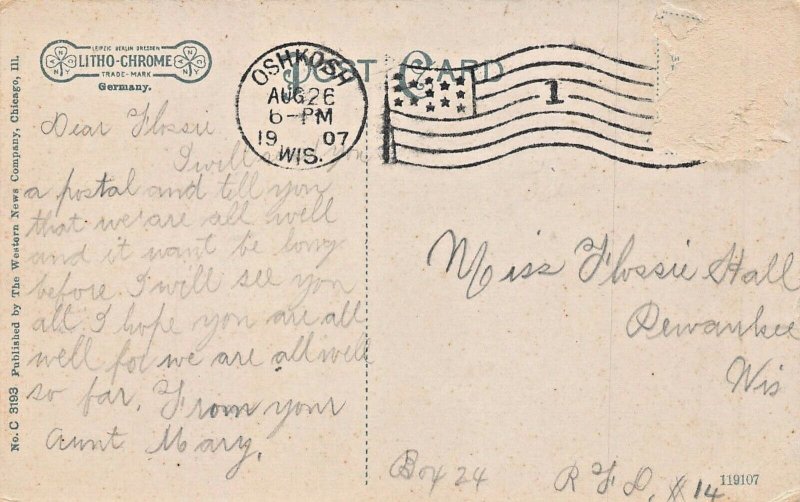 LEIPZIG BERLIN DRESDEN
LITHO-CHROME
TRADE-MARK
Germany.
POST CARD
OSHKOSH
AUG 26
6-PM
1907
WIS.
1
Dear Flossie
I will you
a postal and tell you
that we are all well
and it want be long
before I will see you
all. I hope you are all
well for we are all well
so far. From your
Aunt Mary.
Miss Flossie Hall
Pewaukee
Wis
Box 24 R F D # 14
119107
No. C 3193 Published by The Western News Company, Chicago, Ill.